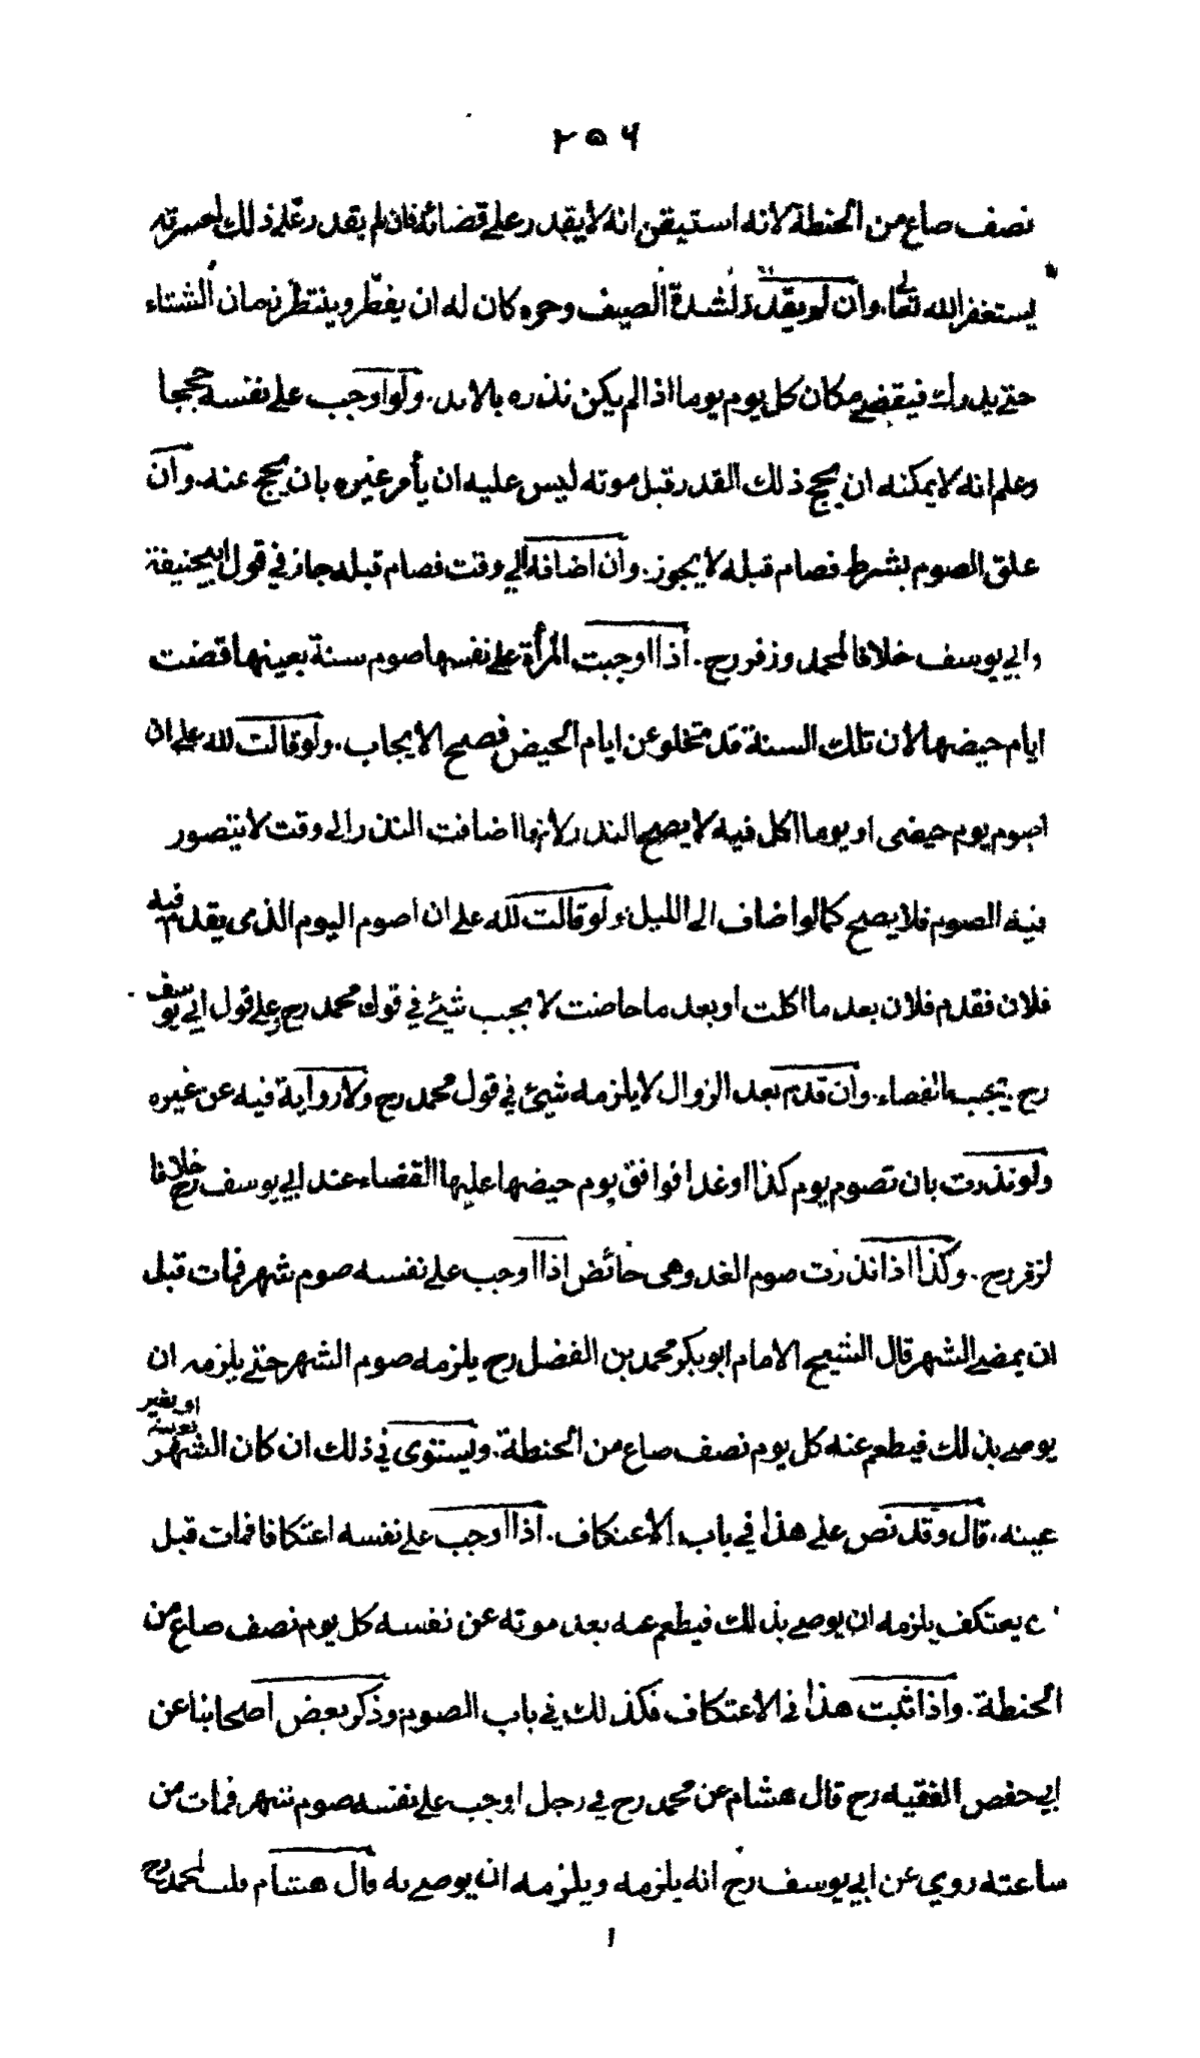 ٢٥٦
نصف صاع من الحنطة لانه استيقن انه لا يقدر على قضائه فان لم يقدر على ذلك لعسرته
يستغفر الله تعالى. وان لم يقدر لشدة الصيف وحره كان له ان يفطر وينتظر زمان الشتاء
حتى يدرك فيقضي مكان كل يوم يوما اذا لم يكن نذره بالابد. ولو اوجب على نفسه حججا
وعلم انه لا يمكنه ان يحج ذلك القدر قبل موته ليس عليه ان يأمر غيره بان يحج عنه. وان
علق الصوم بشرط فصام قبله لا يجوز. وان اضافه الى وقت فصام قبله جاز في قول ابيحنيفة
وابي يوسف خلافا لمحمد وزفر رح. اذا اوجبت المرأة على نفسها صوم سنة بعينها قضت
ايام حيضها لان تلك السنة قد تخلو عن ايام الحيض فصح الايجاب. ولو قالت لله علي ان
اصوم يوم حيضي او يوما اكل فيه لا يصح النذر لانها اضافت النذر الى وقت لا يتصور
فيه الصوم فلا يصح كما لو اضاف الى الليل. ولو قالت لله علي ان اصوم اليوم الذي يقدم فيه
فلان فقدم فلان بعد ما اكلت او بعد ما حاضت لا يجب شيئ في قول محمد رح وعلى قول ابي يوسف
رح يجب القضاء. وان قدم بعد الزوال لا يلزمه شيئ في قول محمد رح ولا رواية فيه عن غيره
ولو نذرت بان تصوم يوم كذا او غدا فوافق يوم حيضها عليها القضاء عند ابي يوسف رح خلافا
لزفر رح. وكذا اذا نذرت صوم الغد وهي حائض اذا اوجب على نفسه صوم شهر فمات قبل
ان يمضي الشهر قال الشيخ الامام ابو بكر محمد بن الفضل رح يلزمه صوم الشهر حتى يلزمه ان
يوصي بذلك فيطعم عنه كل يوم نصف صاع من الحنطة. ويستوي في ذلك ان كان الشهر بعينه او بغير
عينه، قال وقد نص على هذا في باب الاعتكاف. اذا اوجب على نفسه اعتكافا فمات قبل
ان يعتكف يلزمه ان يوصي بذلك فيطعم عنه بعد موته عن نفسه كل يوم نصف صاع من
الحنطة. واذا ثبت هذا في الاعتكاف فكذلك في باب الصوم وذكر بعض اصحابنا عن
ابي حفص الفقيه رح قال هشام عن محمد رح في رجل اوجب على نفسه صوم شهر فمات من
ساعته روي عن ابي يوسف رح انه يلزمه ويلزمه ان يوصي به قال هشام قلت لمحمد رح
ا